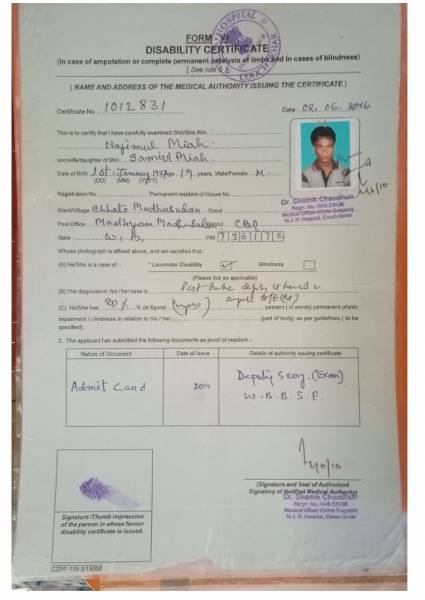 FORM - VI
DISABILITY CERTIFICATE
(In case of amputation or complete permanent paralysis of limbs and in cases of blindness)
( See rule
HOSPITAL
COOCH BEHAR
( NAME AND ADDRESS OF THE MEDICAL AUTHORITY ISSUING THE CERTIFICATE )
Certificate No. 1012831
Date : 02.06.2016
This is to certify that I have carefully examined Shri/Smt./Km.
Najimul Miah
son/wife/daughter of Shri Samiul Miah
Date of Birth 1st January 1997 age 19 years, Male/Female M
(DD) (MM) (YYYY)
Registration No. Permanent resident of House No.
Dr. Shamik Chaudhuri
Medical Officer (Ortho Surgeon)
M.J.N. Hospital, Cooch Behar
Ward/Village Chhato Madhusudan Street
Post Office Madhyam Madhusudan
State W.B. PIN 736172
Whose photograph is affixed above, and am satisfied that :
(A) He/She is a case of :- * Locomotor Disability ✓ Blindness
(Please tick as applicable)
(B) The diagnosis in his / her case is
(C) He/She has 80% % (in figure) percent ( in words) permanent physical
impairment / blindness in relation to his / her (part of body) as per guidelines ( to be
specified).
2. The applicant has submitted the following documents as proof of resident :-
Nature of Document Date of Issue Details of authority issuing certificate
Admit Card 2014 Deputy Secy. (Exam)
W.B.B.S.E.
(Signature and Seal of Authorized
Signatory of Notified Medical Authority)
Dr. Shamik Chaudhuri
Medical Officer (Ortho Surgeon)
M.J.N. Hospital, Cooch Behar
Signature /Thumb impression
of the person in whose favour
disability certificate is issued.